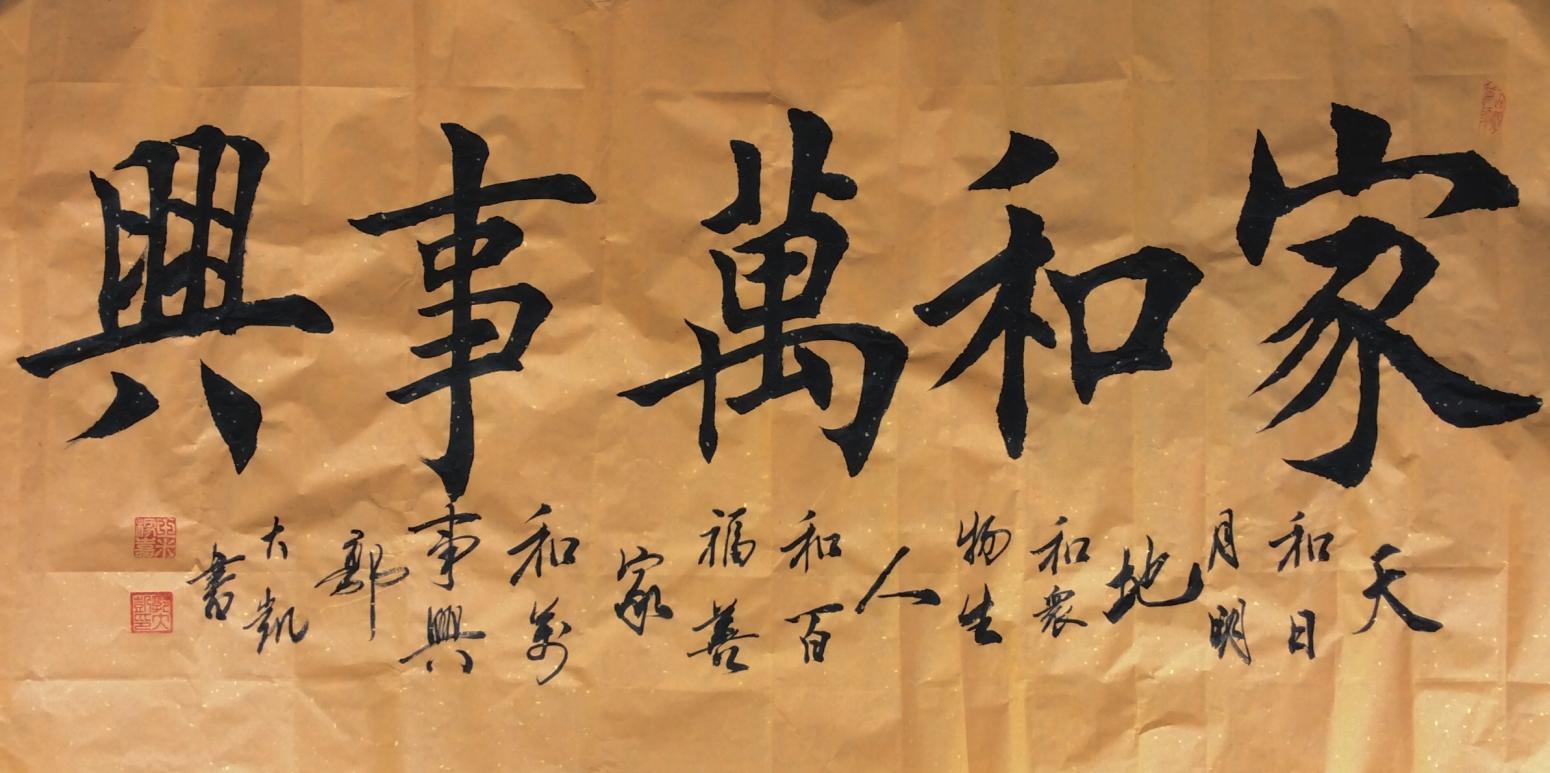 家和萬事興
天和日月明地和衆物生人和百福善家和萬事興郭大凱書